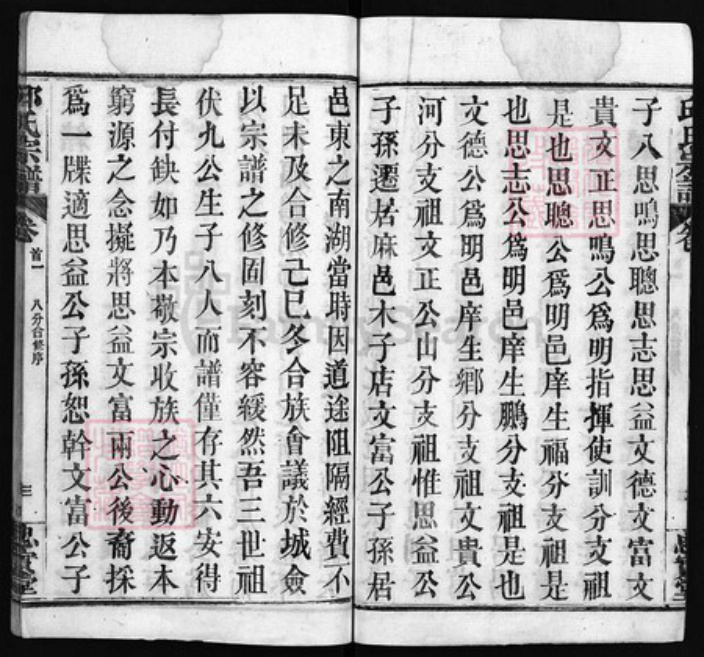 子八思鳴思聰思志思益文德文富文
貴文正思鳴公爲明指揮使訓分支祖
是也思聰公爲明邑庠生福分支祖是
也思志公爲明邑庠生鵬分支祖是也
文德公爲明邑庠生鄉分支祖文貴公
河分支祖文正公山分支祖惟思益公
子孫遷居麻邑木子店文富公子孫居
邑東之南湖當時因道途阻隔經費不
足未及合修己巳冬合族會議於城僉
以宗譜之修固刻不容緩然吾三世祖
伏九公生子八人而譜僅存其六安得
長付缺如乃本敬宗收族之心動返本
窮源之念擬將思益文富兩公後裔採
爲一牒適思益公子孫恕幹文富公子
邱氏宗譜
卷
首一
八分合修序
三